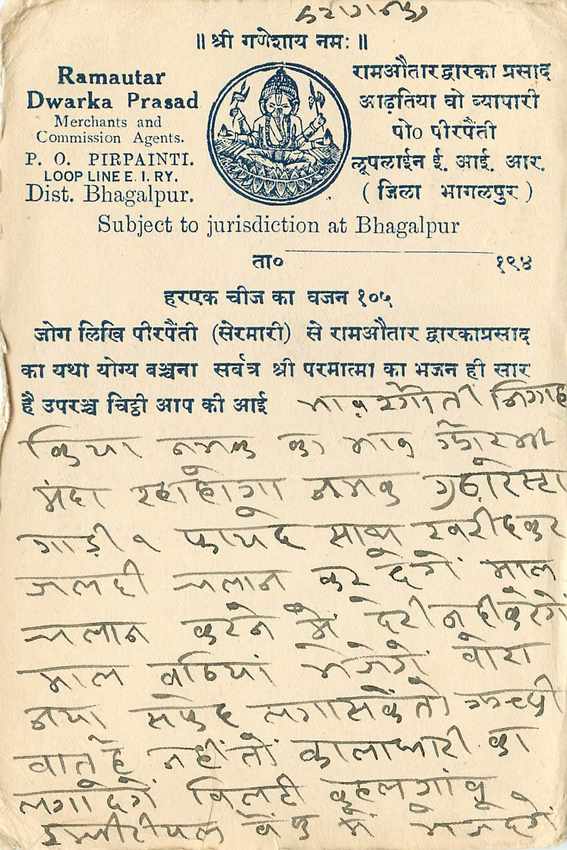 ॥ श्री गणेशाय नमः ॥
Ramautar
Dwarka Prasad
Merchants and
Commission Agents.
P. O. PIRPAINTI.
LOOP LINE E. I. RY.
Dist. Bhagalpur.
रामऔतार द्वारका प्रसाद
आढ़तिया वो व्यापारी
पो० पीरपैंती
लूपलाईन ई. आई. आर.
( जिला भागलपुर )
Subject to jurisdiction at Bhagalpur
ता० १९४
हरएक चीज का वजन १०५
जोग लिखि पीरपैंती (सेरमारी) से रामऔतार द्वारकाप्रसाद
का यथा योग्य बञ्चना सर्वत्र श्री परमात्मा का भजन ही सार
है उपरञ्च चिट्ठी आप की आई भाव निगाह
किया नमक का भाव
मंदा रहा होगा नमक
गाड़ी १ साब खरीदकर
जलदी चलान कर देगें माल
चलान करने में देरी नहीं करेगें
माल बढियां भेजेगें बोरा
नया सफेद लगा सकें तो
बात है नहीं तो का
लगा देगें बिलटी कहलगांव
बैंक में भेज देगें